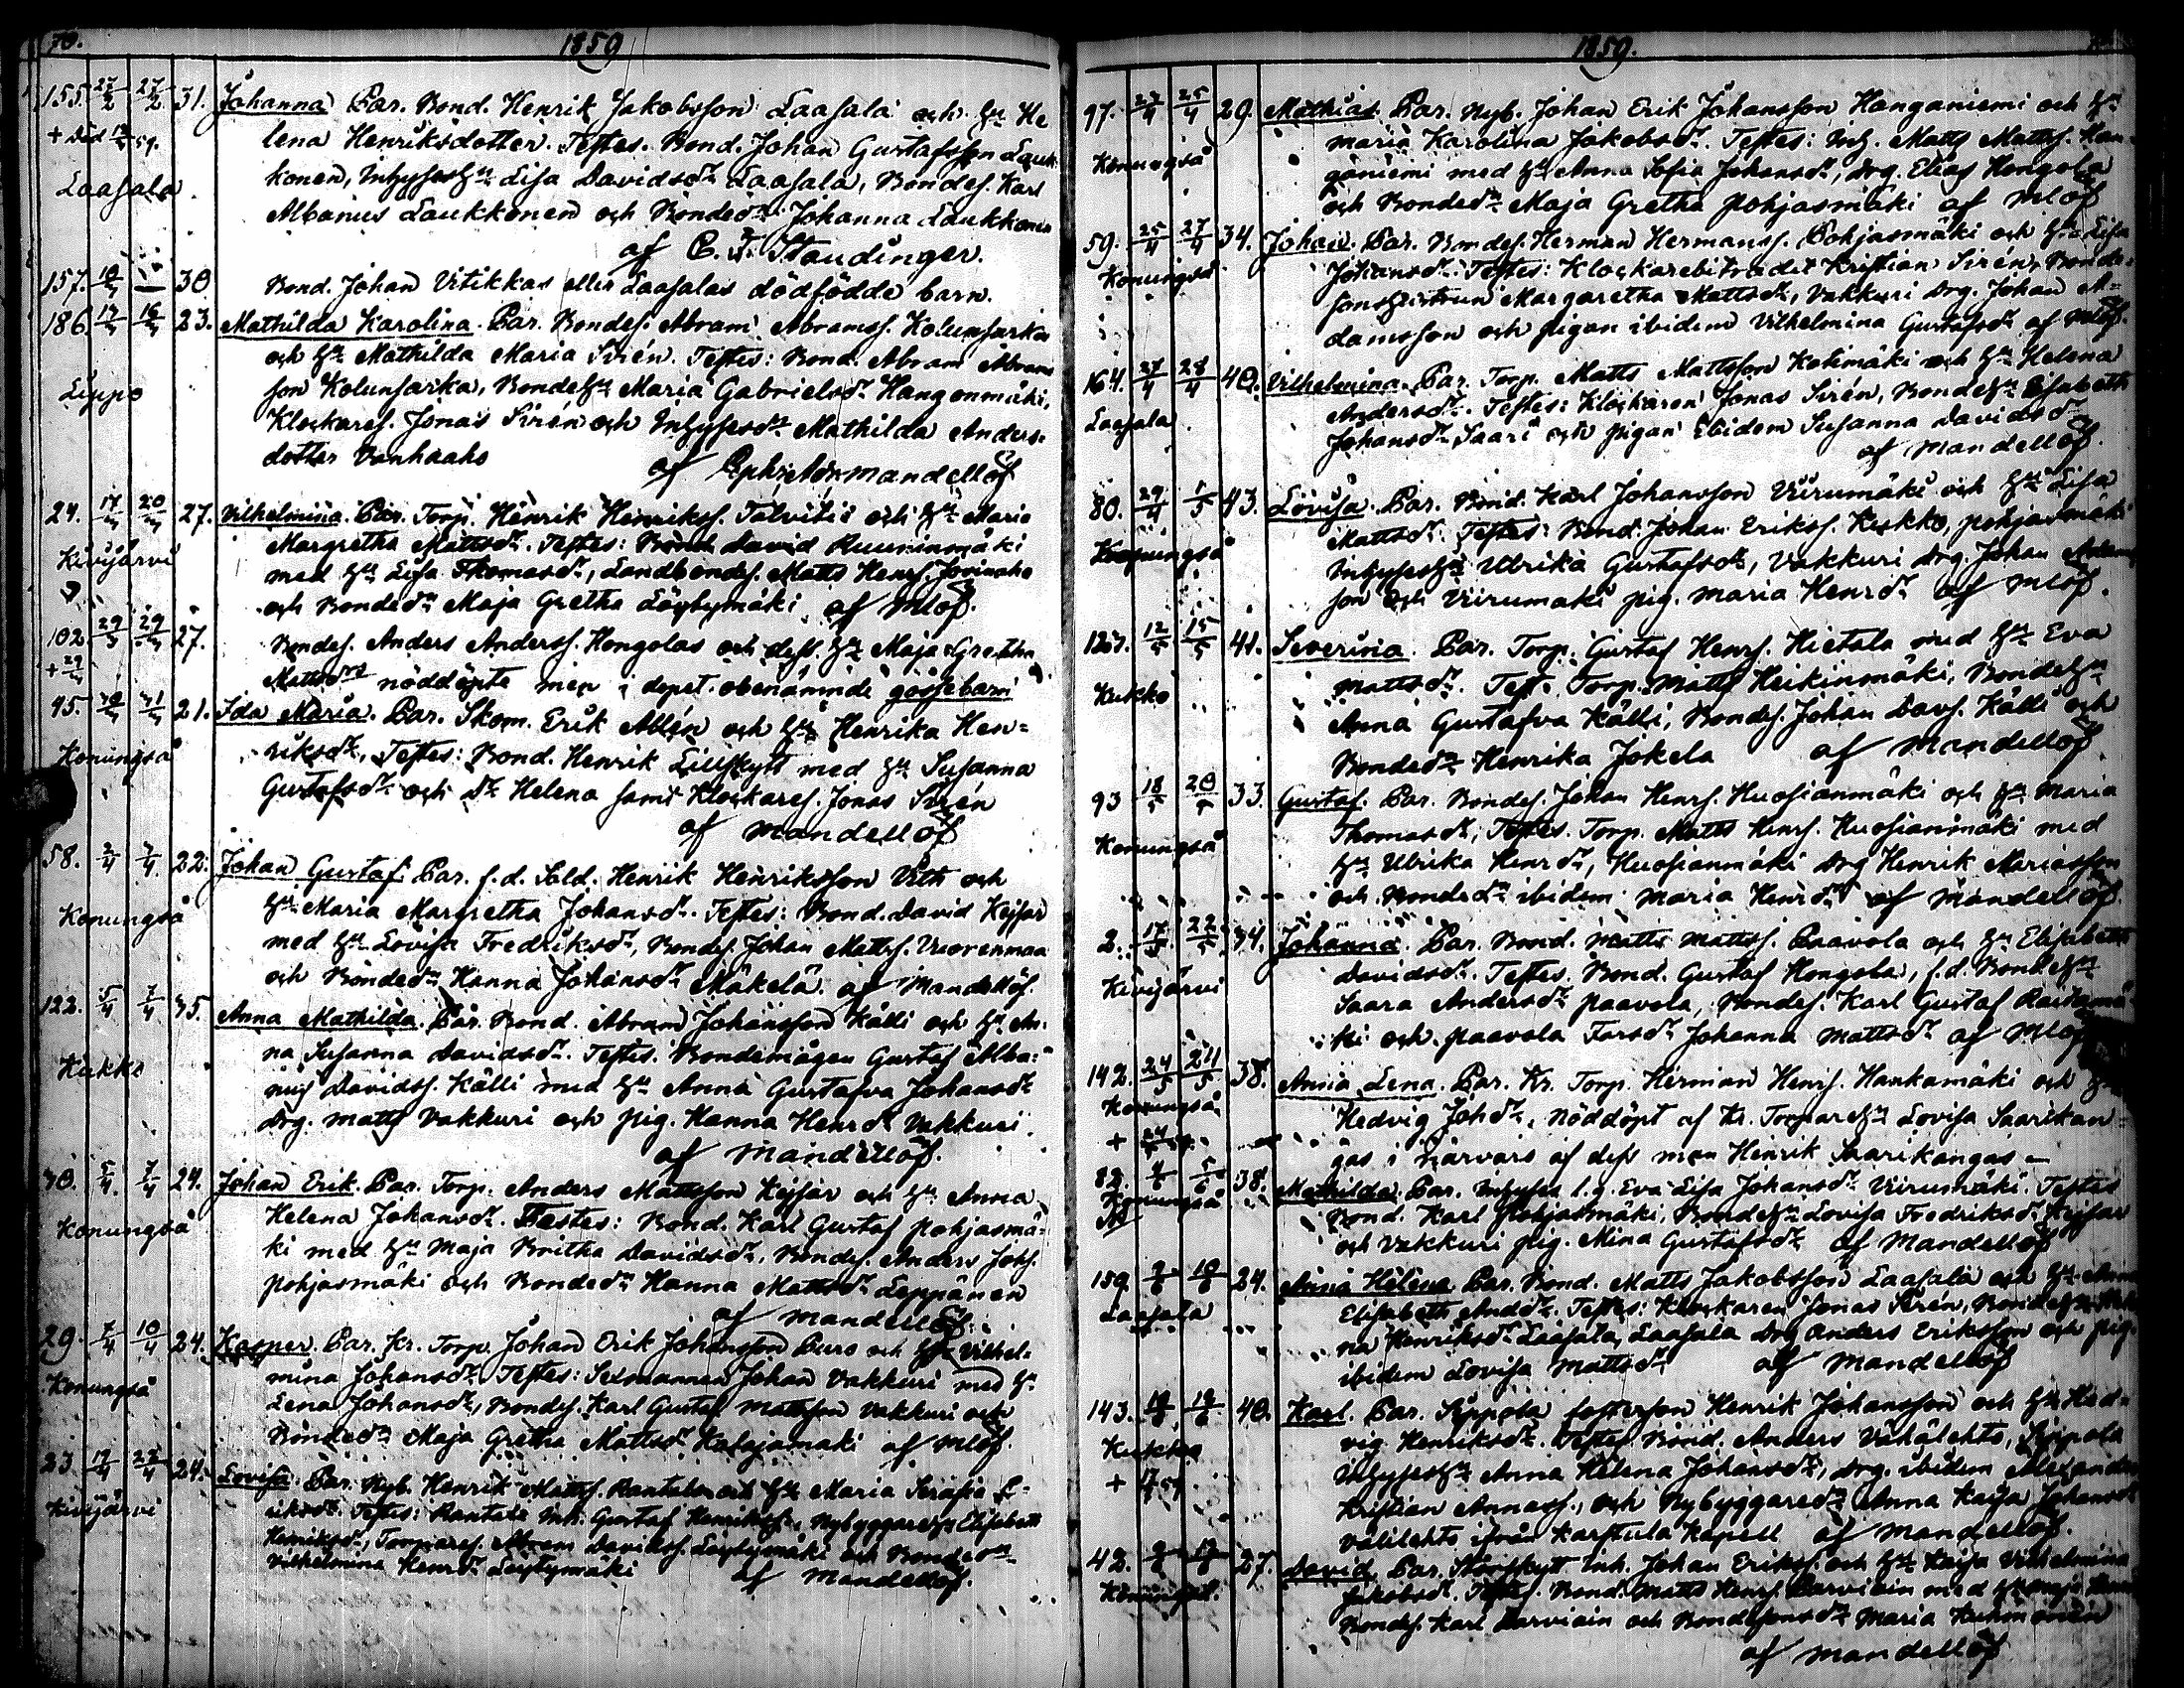 70.
1859
155. 27/2 27/2 31. Johanna Par. Bond. Henrik Jakobsson Laasala och H:u He
+ död 59. lena Henriksdotter. Testes. Bond. Johan Gustafsson Lauk
Laasala konen, Inhyses H:u Lisa Davidsd:r Laasala, Bondes. Karl
Albanus Laukkonen och Bonded:r Johanna Laukkonen
af C. F. Staudinger.
157. 30 Bond. Johan Vitikkas eller Laasalas dödfödde barn.
186 23. Mathilda Karolina. Par. Bondes. Abram Abramss. Kolunsarka
och H:u Mathilda Maria Sirén. Testes: Bond. Abram Abrams
Leppo son Kolunsarka, Bonde H:u Maria Gabrielsd:r Hangonmäki,
Klockares. Jonas Sirén och Inhysesd:r Mathilda Anders-
dotter Vanhaaho af Mandellöf
24. 27. Vilhelmina. Par. Torp. Henrik Henrikss. Talvitie och H:u Maria
Kivijärvi Margretha Mattsd:r. Testes: Bond. David Ruuninmäki
med H:u Lisa Thomasd:r, Landbondes. Matts Henrs.
och Bonded:r Maja Gretha Löytymäki af Mlöf.
102 29/3 27. Bondes. Anders Anderss. Hongolas och dess H:u Maja Gretha
Mattsd:rs nöddöpte men i döpet obenämnde gossebarn
95. 21. Ida Maria. Par. Skom. Erik Allén och H:u Henrika Hen-
Konungså riksd:r, Testes: Bond. Henrik Lillskytt med H:u Susanna
Gustafsd:r och D:r Helena samt Klockares. Jonas Sirén
af Mandellöf
58. 2/4 7/4 22. Johan Gustaf. Par. f.d. Sold. Henrik Henriksson Vith och
H:u Maria Margretha Johansd:r. Testes: Bond. David Kejsar
Konungså med H:u Lovisa Fredriksd:r, Bondes. Johan Mattss. Vuorenmaa
och Bonded:r Hanna Johansd:r Mäkelä. af Mandellöf.
122. 5/4 7/4 35. Anna Mathilda. Par. Bond. Abram Johansson Källi och H:u An-
na Susanna Davidsd:r. Testes. Bondemågen Gustaf Alba-
Kukko nus Davidss. Källi med H:u Anna Gustafva Johansd:r
Drg. Matts Vakkuri och Pig. Hanna Henrsd:r Vakkuri.
af Mandellöf.
30. 5/4 7/4 24. Johan Erik. Par. Torp. Anders Mattsson Kejsar och H:u Anna
Helena Johansd:r. Testes: Bond. Karl Gustaf Pohjasmä-
Konungså ki med H:u Maja Britha Davidsd:r, Bondes. Anders Johs.
Pohjasmäki och Bonded:r Hanna Mattsd:r Leppänen
af Mandellöf.
29. 7/4 10/4 24. Kasper. Par. Kr. Torp. Johan Erik Johansson Puro och H:u Vilhel-
Konungså mina Johansd:r. Testes: Sexmannen Johan Vakkuri med H:u
Lena Johansd:r, Bondes. Karl Gustaf Mattsson Vakkuri och
Bonded:r Maja Gretha Mattsd:r Katajamäki af Mlöf.
23. 17/4 24. Lovisa. Par. Nyb. Henrik Mattss. Rantala och H:u Maria Serafia E-
Kivijärvi riksd:r. Testes: Rantala Inh. Gustaf Henrikss., Nybyggare H:u Elisabeth
Henriksd:r, Torpares. Abram Davidss. Löytymäki och Bonded:r
Vilhelmina Henrsd:r Löytymäki af Mandellöf.
1859.
97. 25/4 29. Mathias. Par. Nyb. Johan Erik Johansson Hanganiemi och H:u
Konungså Maria Karolina Jakobsd:r. Testes: Inh. Matts Mattss. Han-
ganiemi med H:u Anna Sofia Johansd:r, Drg. Elias Hongola
och Bonded:r Maja Gretha Pohjasmäki af Mlöf
59. 25/4 27/4 34. Johan. Par. Bondes. Herman Hermanss. Pohjasmäki och H:u Lisa
Konungså Johansd:r. Testes: Klockarebiträdet Kristian Sirén, Bonde-
sonshustrun Margaretha Mattsd:r, Vakkuri Drg. Johan A-
damsson och Pigan ibidem Vilhelmina Gustafsd:r af Mlöf.
164. 27/4 28/4 40. Vilhelmina. Par. Torp. Matts Mattsson Kotimäki och H:u Helena
Laasala Andersd:r. Testes: Klockaren Jonas Sirén, Bonde H:u Elisabeth
Johansd:r Saari och Pigan ibidem Susanna Davidsd:r
af Mandellöf.
80. 29/4 1/5 43. Lovisa. Par. Bond. Karl Johansson Viirumäki och H:u Lisa
Konungså Mattsd:r. Testes: Bond. Johan Erikss. Kukko, Pohjasmäki
Inhyses H:u Ulrika Gustafsd:r, Vakkuri Drg. Johan
son och Viirumäki Pig. Maria Henrsd:r af Mlöf.
123. 12/5 15/5 41. Severina. Par. Torp. Gustaf Henrs. Hietala med H:u Eva
Kukko Mattsd:r. Test. Torp. Matts Heikinmäki, Bonde H:u
Anna Gustafva Källi, Bondes. Johan Davs. Källi och
Bonded:r Henrika Jokela af Mandellöf
93 18/5 20/5 33. Gustaf. Par. Bondes. Johan Henrs. Huosianmäki och H:u Maria
Konungså Thomasd:r, Testes. Torp. Matts Henrs. Huosianmäki med
H:u Ulrika Henrsd:r, Huosianmäki Drg Henrik Mariasson
och Bonded:r ibidem Maria Henrsd:r af Mandellöf.
2. 17/5 22/5 34. Johanna. Par. Bond. Matts Mattss. Paavola och H:u Elisabeth
Kivijärvi Davidsd:r. Testes. Bond. Gustaf Hongola, f.d. Bonde H:u
Saara Andersd:r Paavola, Bondes. Karl Gustaf Rautamä-
ki och Paavola Torsd:r Johanna Mattsd:r af Mlöf
142. 24/5 24/5 38. Anna Lena. Par. Kr. Torp. Herman Henrs. Hankamäki och H:u
Konungså Hedvig Johd:r, nöddöpt af Kr. Torpare H:u Lovisa Saarikan-
+ gas i närvaro af dess man Henrik Saarikangas —
82. 38. Mathilda. Par. Inhyses l.q. Eva Lisa Johansd:r Viirumäki. Testes
Konungså Bond. Karl Pohjasmäki, Bonde H:u Lovisa Fredriksd:r Kejsar
och Vakkuri Pig. Mina Gustafsd:r af Mandellöf
159. 24. Anna Helena. Par. Bond. Matts Jakobsson Laasala och H:u Anna
Laasala Elisabeth Andsd:r. Testes: Klockaren Jonas Sirén, Bonde H:u
na Henriksd:r Laasala, Laasala Drg Anders Eriksson och Pig.
ibidem Lovisa Mattsd:r af Mandellöf
143. 40. Karl. Par. Sippola fosterson Henrik Johansson och H:u Hed-
Kukko vig Henriksd:r. Testes Bond. Anders Vähälehto, Sippola
+ Inhyses H:u Anna Helena Johansd:r, Drg. ibidem Alexander
Kristian Annass., och Nybyggared:r Anna Kajsa Johansd:r
Välilehto ifrån Karstula Kapell af Mandellöf.
42. 27. David. Par. Storskytt Inh. Johan Erikss. och H:u Kajsa Vilhelmina
Konungså. Jakobsd:r. Testes. Bond. Matts Henrs. Parviain med H:u Maja
Bondes. Karl Parviain och Bondesonsd:r Maria
af Mandellöf